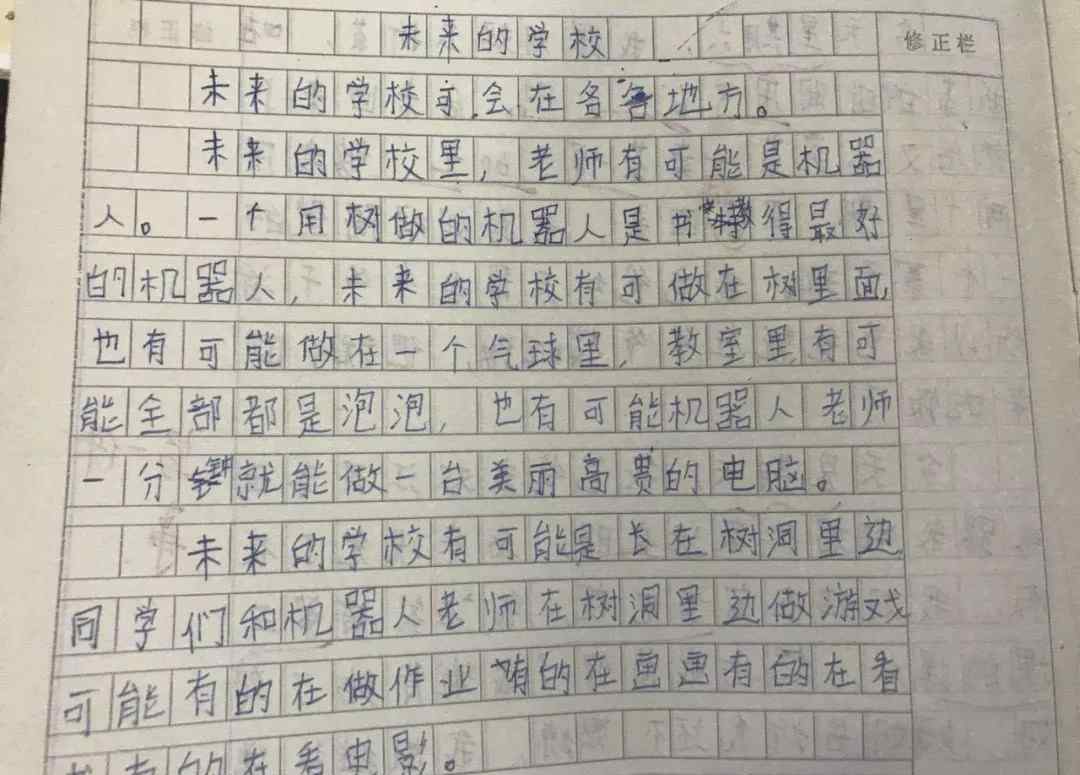 未来的学校
修正栏
未来的学校可会在各地方。
未来的学校里，老师有可能是机器
人。一个用树做的机器人是书教得最好
的机器人，未来的学校有可做在树里面，
也有可能做在一个气球里，教室里有可
能全部都是泡泡，也有可能机器人老师
一分钟就能做一台美丽高贵的电脑。
未来的学校有可能是长在树洞里边
同学们和机器人老师在树洞里边做游戏
可能有的在做作业有的在画画有的在看
书有的在看电影。